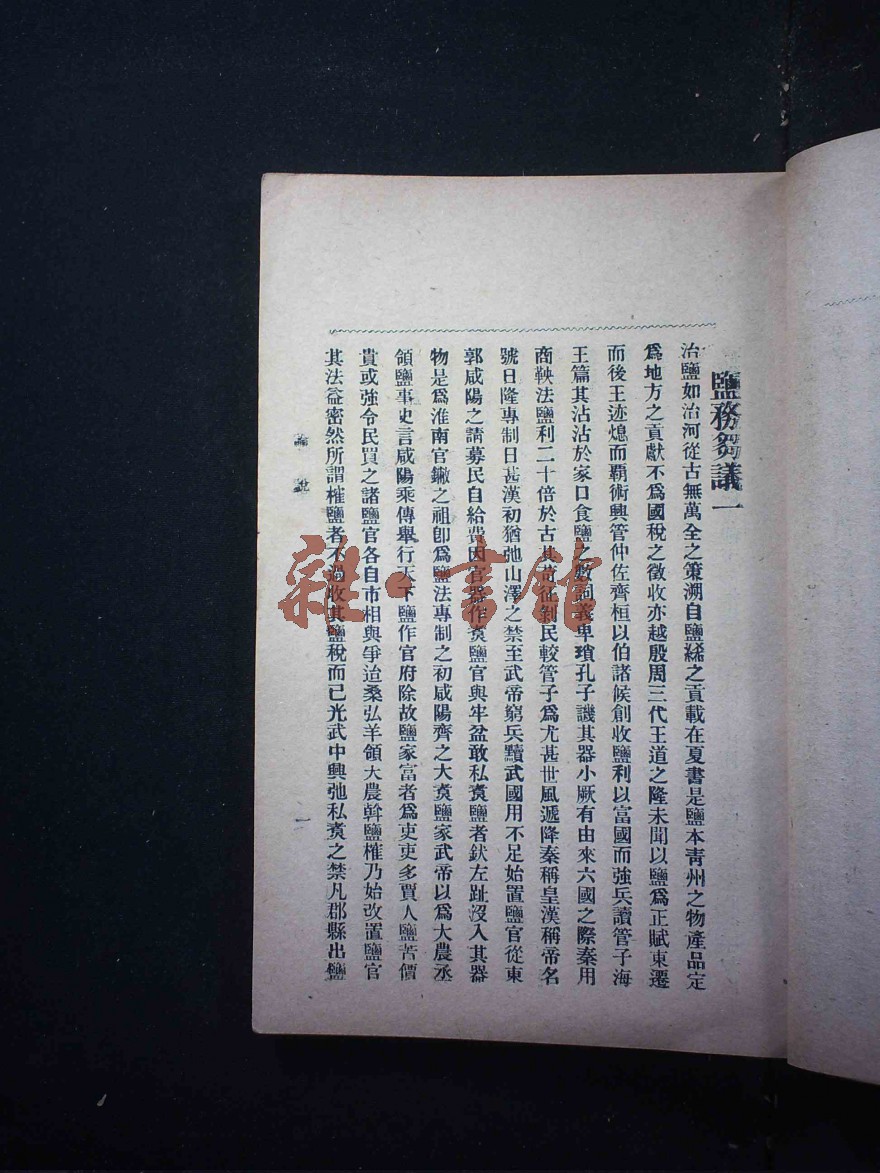 鹽務芻議一
治鹽如治河從古無萬全之策溯自鹽絺之貢載在夏書是鹽本青州之物產品定
爲地方之貢獻不爲國稅之徵收亦越殷周三代王道之隆未聞以鹽爲正賦東遷
而後王迹熄而覇術興管仲佐齊桓以伯諸候創收鹽利以富國而強兵讀管子海
王篇其沾沾於家口食鹽之數詞義卑瑣孔子譏其器小厥有由來六國之際秦用
商鞅法鹽利二十倍於古其苛征剝民較管子爲尤甚世風遞降秦稱皇漢稱帝名
號日隆專制日甚漢初猶弛山澤之禁至武帝窮兵黷武國用不足始置鹽官從東
郭咸陽之請募民自給費因官器作煑鹽官與牢盆敢私煑鹽者釱左趾沒入其器
物是爲淮南官鐵之祖卽爲鹽法專制之初咸陽齊之大煑鹽家武帝以爲大農丞
領鹽事史言咸陽乘傳舉行天下鹽作官府除故鹽家富者爲吏吏多賈人鹽苦價
貴或強令民買之諸鹽官各自市相與爭迨桑弘羊領大農斡鹽榷乃始改置鹽官
其法益密然所謂榷鹽者不過收其鹽稅而已光武中興弛私煑之禁凡郡縣出鹽
論說
一
雜·書館